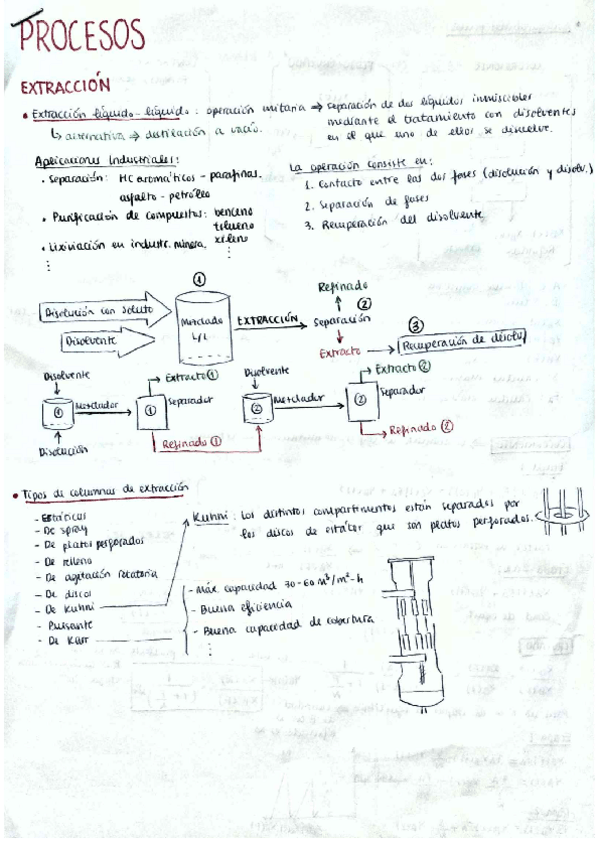 PROCESOS
EXTRACCIÓN
• Extracción líquido-líquido: operación unitaria → separación de dos líquidos inmiscibles
mediante el tratamiento con disolventes
en el que uno de ellos se disuelve.
↳ alternativa → destilación a vacío.
Aplicaciones Industriales:
• Separación: HC aromáticos - parafinas.
asfalto - petróleo
• Purificación de compuestos: benceno
tolueno
xileno
• Lixiviación en industr. minera.
⋮
La operación consiste en:
1. Contacto entre las dos fases (disolución y disolv.)
2. Separación de fases
3. Recuperación del disolvente
Disolución con soluto
Disolvente
①
Mezclado
L/L
EXTRACCIÓN
Refinado
②
Separación
Extracto
③
Recuperación de disolv.
Disolvente
①
Mezclador
Disolución
→ Extracto ①
①
Separador
Refinado ①
Disolvente
②
Mezclador
→ Extracto ②
②
Separador
→ Refinado ②
• Tipos de columnas de extracción
- Estáticas
- De spray
- De platos perforados
- De relleno
- De agitación rotatoria
- De disco
- De Kuhni
- Pulsante
- De Karr
Kuhni: Los distintos compartimentos están separados por
los discos de estátor que son platos perforados.
- Máx capacidad 30-60 m³/m²-h
- Buena eficiencia
- Buena capacidad de cobertura
⋮